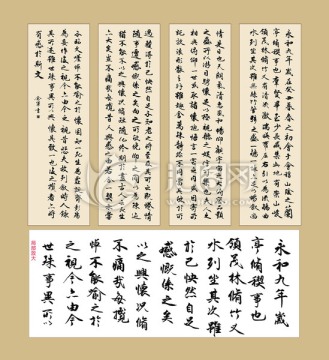 永和九年歲在癸丑暮春之初會于會稽山陰之蘭
亭脩稧事也羣賢畢至少長咸集此地有崇山峻
領茂林脩竹又有清流激湍映帶左右引以為流觴曲
水列坐其次雖無絲竹管弦之盛一觴一詠亦足以暢敘幽
情是日也天朗氣清惠風和暢仰觀宇宙之大俯察品類
之盛所以遊目騁懷足以極視聽之娛信可樂也夫人之相
與俯仰一世或取諸懷抱悟言一室之內或因寄所
託放浪形骸之外雖趣舍萬殊靜躁不同當其欣於所
遇暫得於己快然自足不知老之將至及其所之既惓情
隨事遷感慨係之矣向之所欣俛仰之間以為陳迹
猶不能不以之興懷況脩短隨化終期於盡古人云死生
亦大矣豈不痛哉每攬昔人興感之由若合一契未嘗
不臨文嗟悼不能喻之於懷固知一死生為虛誕齊彭殤
為妄作後之視今亦由今之視昔悲夫故列敘時人錄
其所述雖世殊事異所以興懷其致一也後之攬者亦將
有感於斯文
局部放大
永和九年歲
亭脩稧事也
領茂林脩竹又
水列坐其次雖
己快然自足
感慨係之矣
以之興懷況脩
不痛哉每攬
悼不能喻之於
之視今亦由今
世殊事異所以